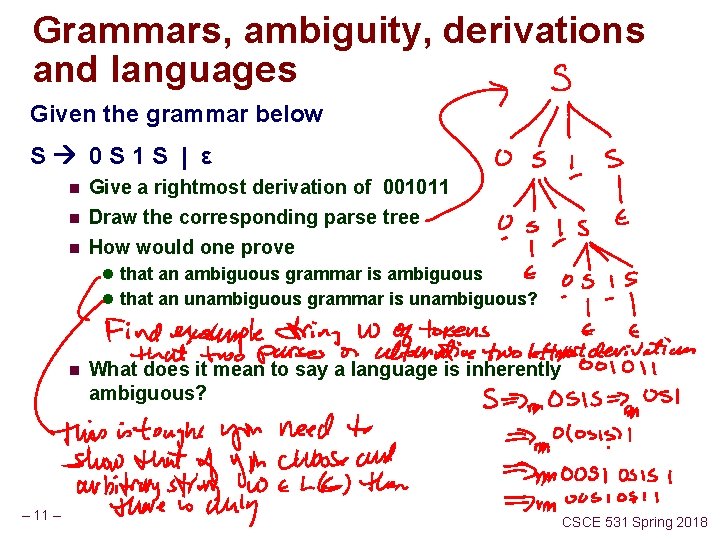 Grammars, ambiguity, derivations
and languages
Given the grammar below
S → 0 S 1 S | ε
Give a rightmost derivation of 001011
Draw the corresponding parse tree
How would one prove
that an ambiguous grammar is ambiguous
that an unambiguous grammar is unambiguous?
S
0 S 1 S
0 S 1 S ε
ε 0 S 1 S
ε ε
Find example string w of tokens
that two parses or alternative two leftmost derivations
001011
What does it mean to say a language is inherently
ambiguous?
S ⇒rm 0S1S ⇒rm 0S1
⇒rm 0(0S1S)1
⇒rm 00S1 0S1S 1
⇒rm 00S10S11
this is tougher you need to
show that if you choose and
arbitrary string w ∈ L(G) then
there is only
– 11 –
CSCE 531 Spring 2018